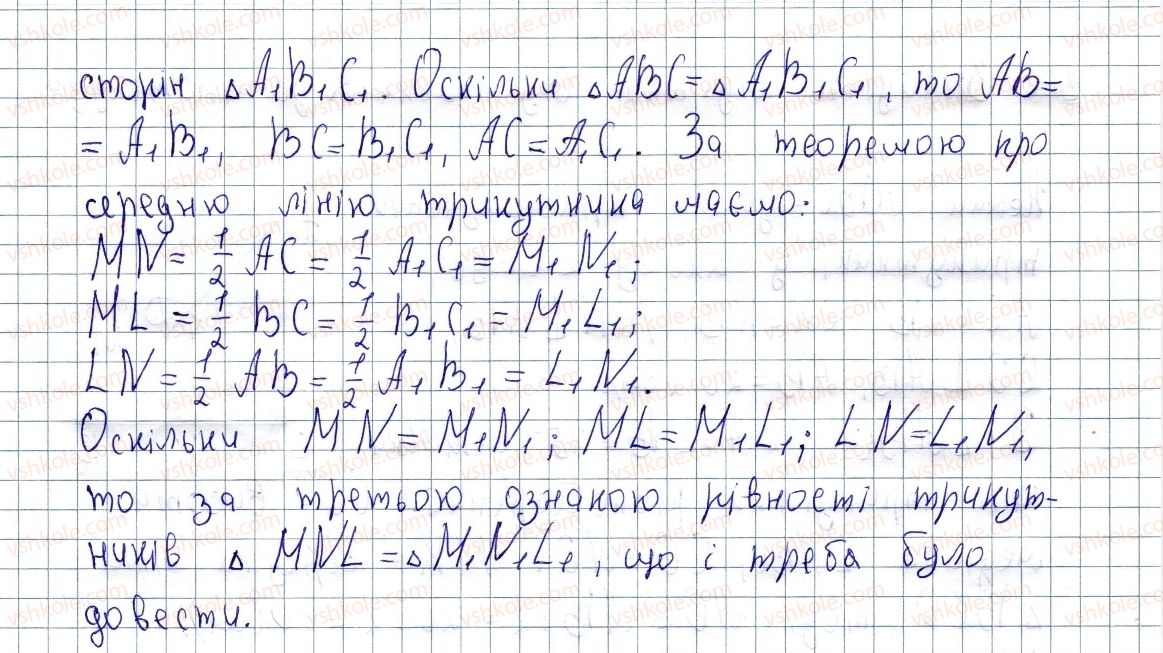 сторін △A₁B₁C₁. Оскільки △ABC=△A₁B₁C₁, то AB=
= A₁B₁, BC=B₁C₁, AC=A₁C₁. За теоремою про
середню лінію трикутника маємо:
MN= 1/2 AC= 1/2 A₁C₁= M₁N₁;
ML = 1/2 BC= 1/2 B₁C₁ = M₁L₁;
LN= 1/2 AB= 1/2 A₁B₁ = L₁N₁.
Оскільки MN = M₁N₁; ML=M₁L₁; LN=L₁N₁,
то за третьою ознакою рівності трикут-
ників △ MNL=△M₁N₁L₁, що і треба було
довести.